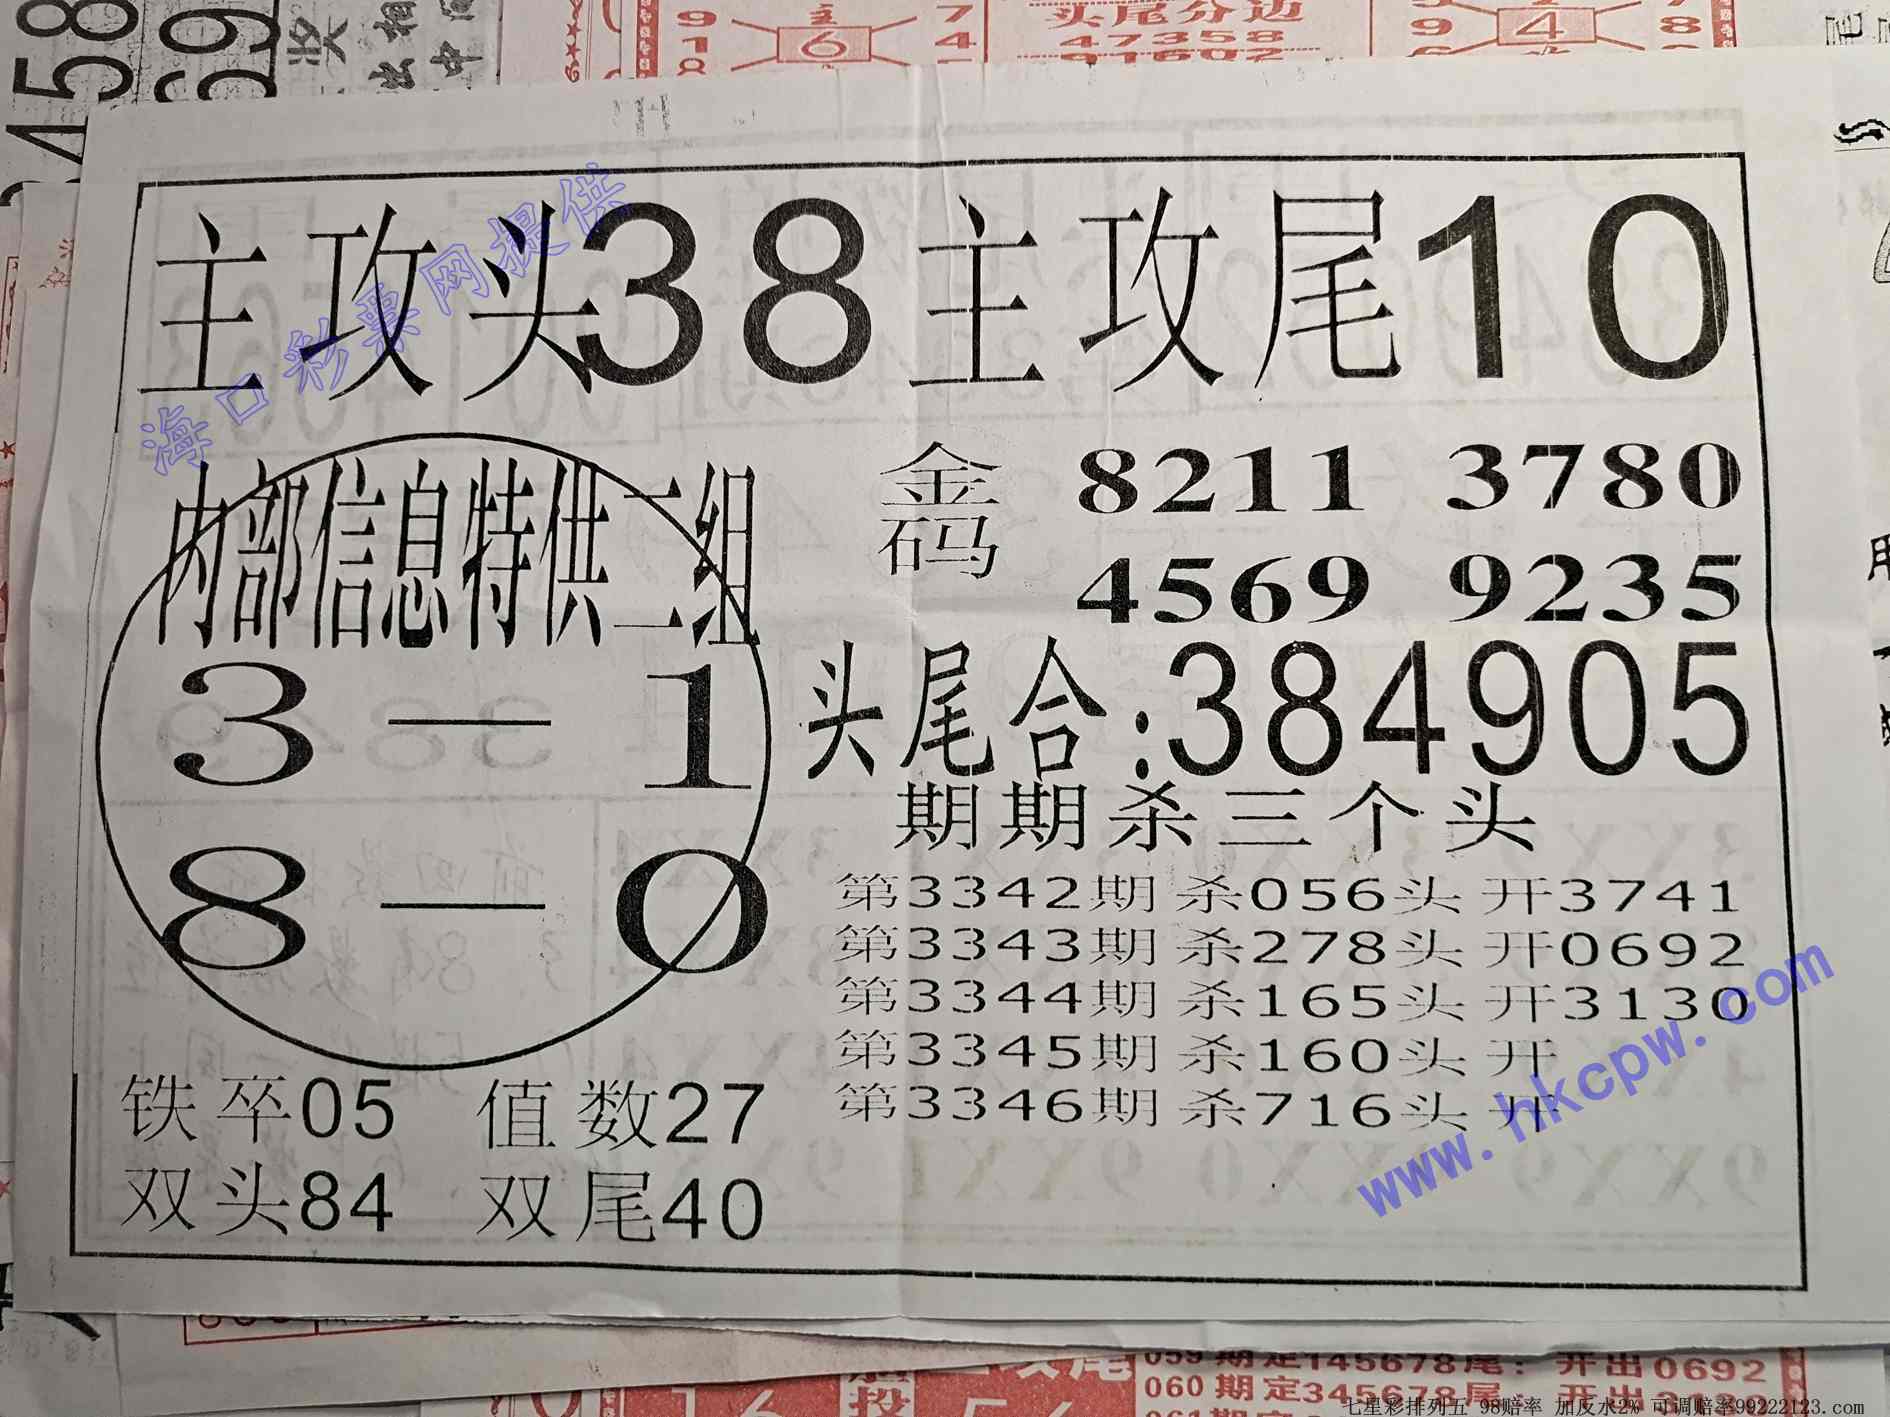 9 6 7
9 1 4
头尾分边
47358
91602
9 4 8
主攻头38 主攻尾10
海口彩票网提供
内部信息特供二组
3—1
8—0
金码 8211 3780
4569 9235
头尾合:384905
期期杀三个头
第3342期杀056头开3741
第3343期杀278头开0692
第3344期杀165头开3130
第3345期杀160头开
第3346期杀716头开
铁卒05 值数27
双头84 双尾40
www.hkcpw.com
059期定145678尾:开出0692
060期定345678尾:开出3130
七星彩排列五 98赔率 加反水2% 可调赔率99222123.com